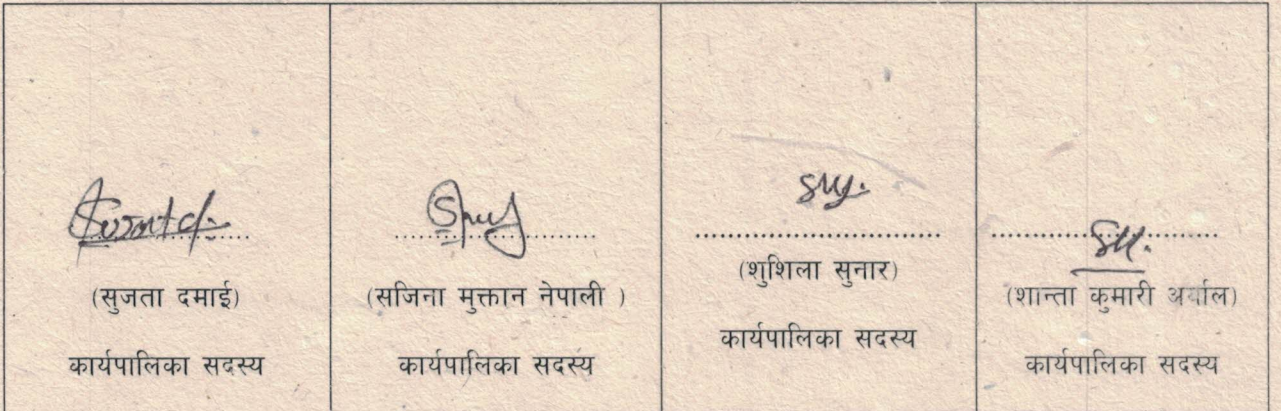 (सुजता दमाई)
कार्यपालिका सदस्य
(सजिना मुक्तान नेपाली )
कार्यपालिका सदस्य
(शुशिला सुनार)
कार्यपालिका सदस्य
(शान्ता कुमारी अर्याल)
कार्यपालिका सदस्य